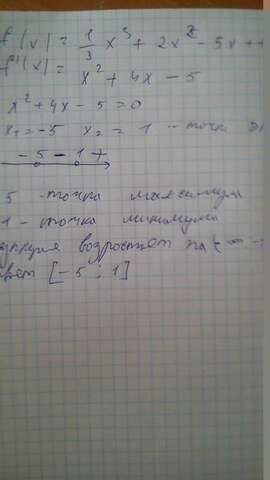 f(x) = 1/3 x³ + 2x² - 5x +
f'(x) = x² + 4x - 5
x² + 4x - 5 = 0
x₁ = -5 x₂ = 1 - точки
-5 - 1 +
5 - точка максимума
1 - точка минимума
возрастает на (-∞
[-5; 1]